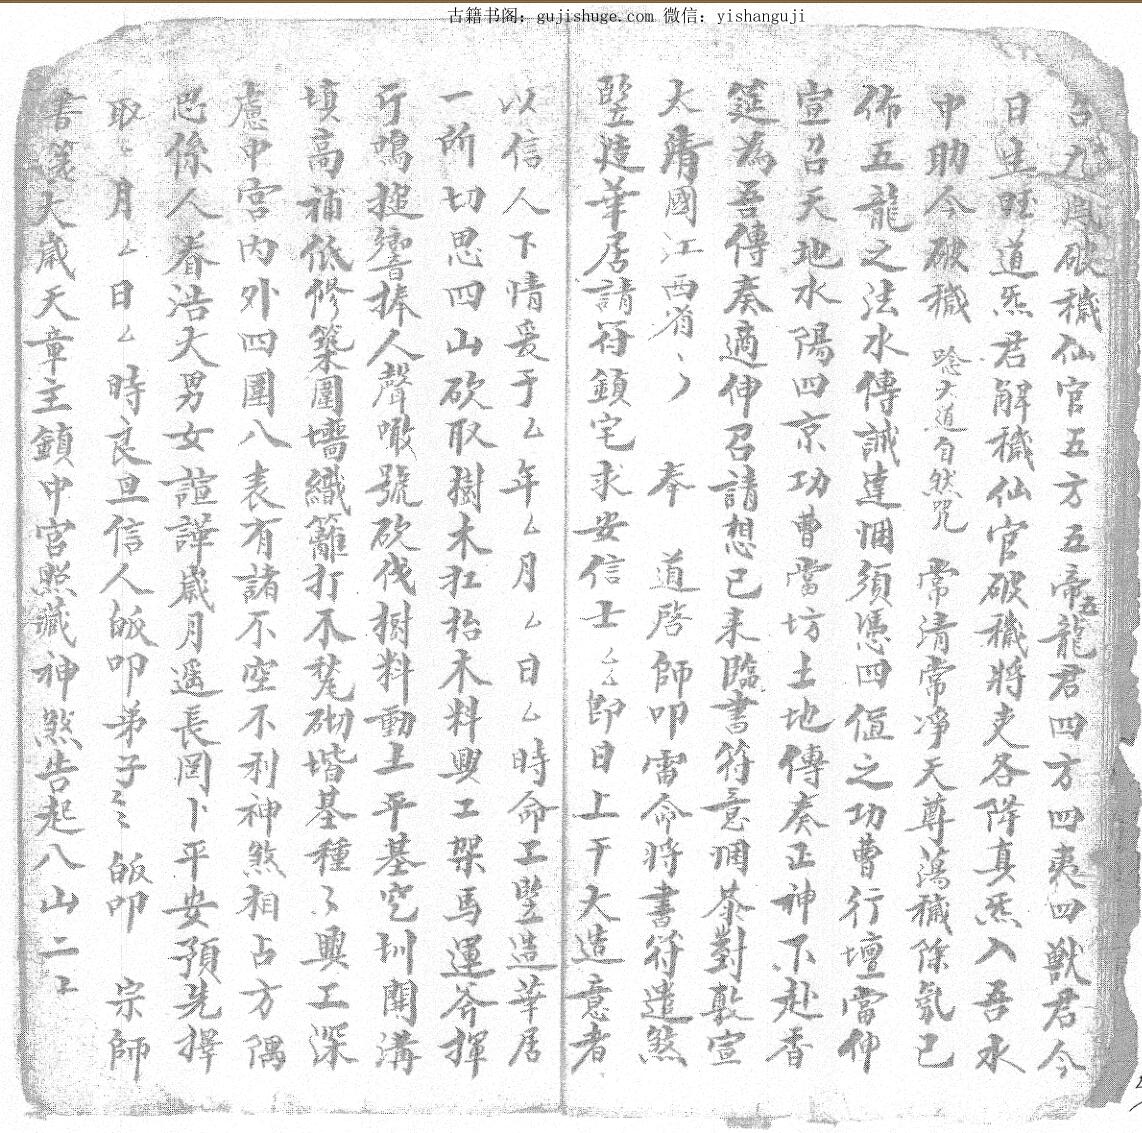 古籍书阁：gujishuge.com 微信：yishanguji
召九鳳破穢仙官五方五帝五龍君四方四夷四獸君今
日生旺道炁君解穢仙官破穢將吏各降真炁入吾水
中助今破穢 唸大道自然咒 常清常淨天尊蕩穢除氛已
佈五龍之法水傳誠達悃須憑四值之功曹行壇當伸
宣召天地水陽四京功曹當坊土地傳奏正神下赴香
筵為吾傳奏適伸召請想已来臨書符意悃恭對敷宣
大清國江西省〻 奉 道啓師叩雷命將書符遣煞
豎造華居請符鎮宅求安信士厶厶即日上干大造意者
以信人下情爰于厶年厶月厶日厶時命工豎造華居
一所切思四山砍取樹木扛抬木料興工架馬運斧揮
斤鳴搥響捧人聲噉號砍伐樹料動土平基穵圳開溝
填高補低修築圍墻織籬打不砌堦基種〻興工深
慮中宮內外四圍八表有諸不空不利神煞相占方隅
思係人眷浩大男女諠譁歲月遥長罔卜平安預先擇
取厶月厶日厶時良旦信人皈叩弟子〻〻皈叩 宗師
書篆大歲天章主鎮中宮煞藏神煞告起八山二十